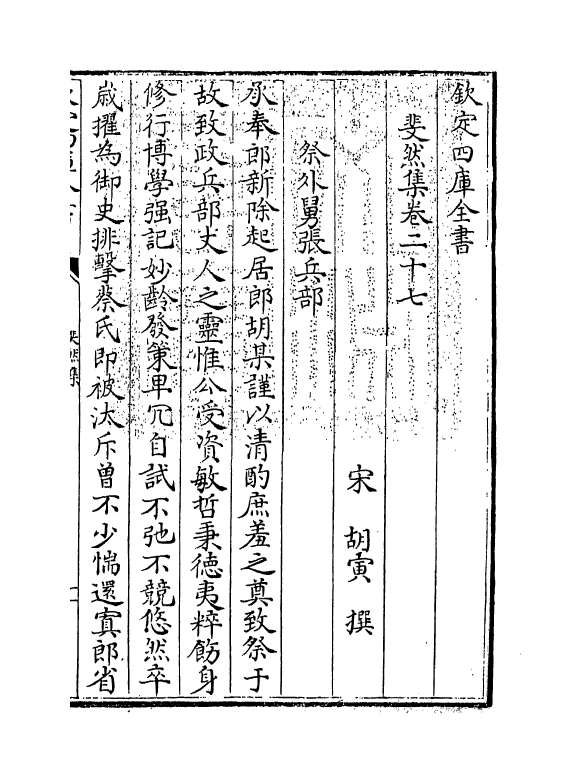 欽定四庫全書
斐然集卷二十七
宋 胡寅 撰
祭外舅張兵部
承奉郎新除起居郎胡某謹以清酌庶羞之奠致祭于
故致政兵部丈人之靈惟公受資敏哲秉德夷粹飭身
修行博學强記妙齡發策卑冗自試不弛不競悠然卒
歲擢為御史排擊蔡氏即被汰斥曾不少惴還寘郎省
斐然集